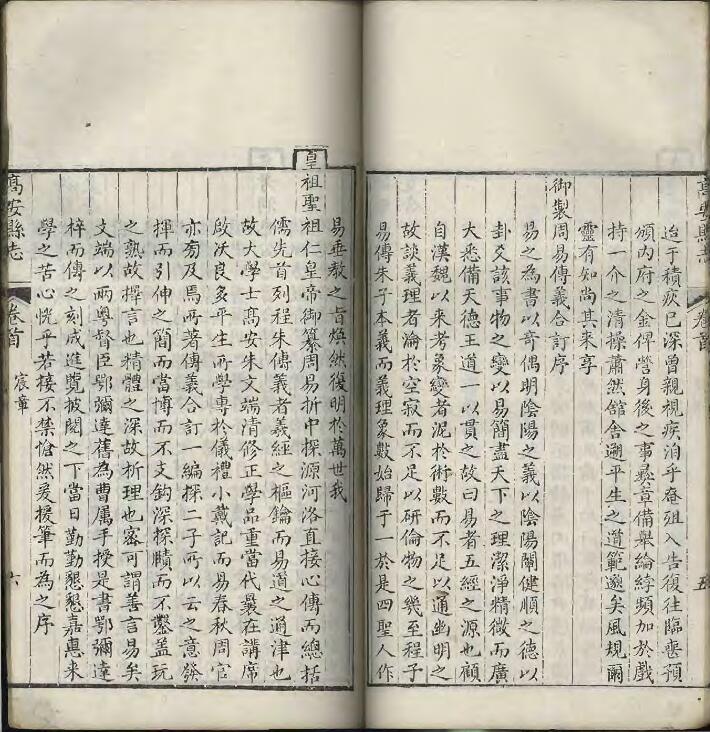 高安縣志
卷首
五
迨于積疾已深曾親視疾洎乎眘殂入告復往臨喪預
頒內府之金俾營身後之事彝章備舉綸綍頻加於戲
持一介之清操蕭然館舍遡平生之道範邈矣風規爾
靈有知尚其來享
御製周易傳義合訂序
易之為書以奇偶明陰陽之義以陰陽闡健順之德以
卦爻該事物之變以易簡盡天下之理潔淨精微而廣
大悉備天德王道一以貫之故曰易者五經之源也顧
自漢魏以來考象變者泥於術數而不足以通幽明之
故談義理者淪於空寂而不足以研倫物之幾至程子
易傳朱子本義而義理象數始歸于一於是四聖人作
易垂教之旨煥然復明於萬世我
皇祖聖祖仁皇帝御纂周易折中探源河洛直接心傳而總括
儒先首列程朱傳義者羲經之樞鑰而易道之通津也
故大學士高安朱文端清修正學品重當代曩在講席
啟沃良多平生所學專於儀禮小戴記而易春秋周官
亦旁及焉所著傳義合訂一編採二子所以云之意發
揮而引伸之簡而當博而不支鈎深探賾而不鑿蓋玩
之熟故擇言也精體之深故析理也密可謂善言易矣
文端以兩粵督臣鄂彌達舊為曹属手授是書鄂彌達
梓而傳之刻成進覽披閱之下當日勤勤懇懇嘉惠來
學之苦心恍乎若接不禁愴然爰援筆而為之序
高安縣志
卷首
宸章
六